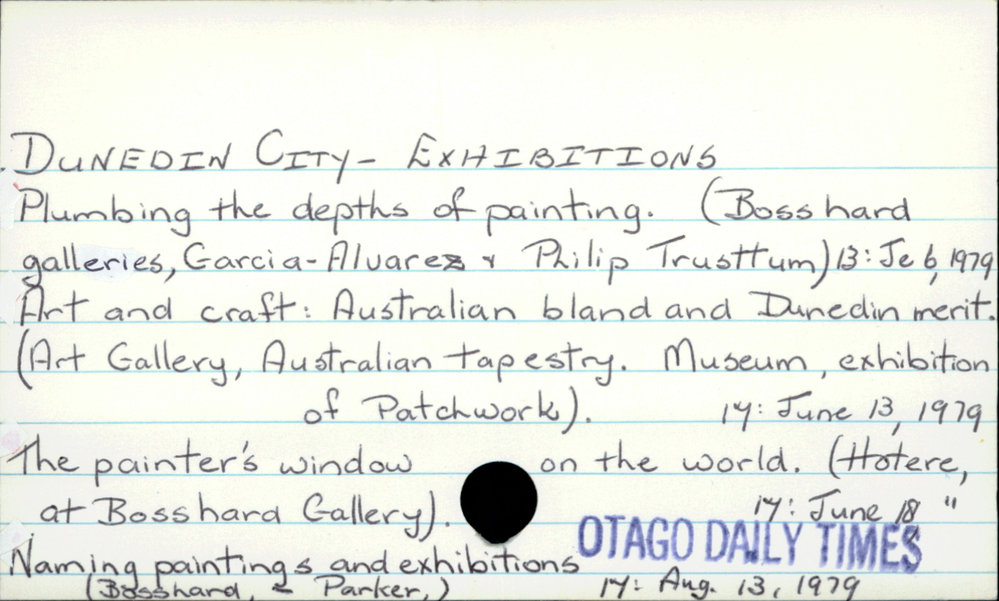 DUNEDIN CITY- EXHIBITIONS
Plumbing the depths of painting. (Bosshard
galleries, Garcia-Alvarez & Philip Trusttum) 13: Je 6, 1979
Art and craft: Australian bland and Dunedin merit.
(Art Gallery, Australian tapestry. Museum, exhibition
of Patchwork). 14: June 13, 1979
The painter's window on the world. (Hotere,
at Bosshard Gallery). 14: June 18 "
OTAGO DAILY TIMES
Naming paintings and exhibitions
(Bosshard, & Parker,) 14: Aug. 13, 1979